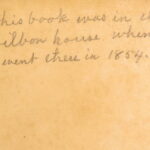 his book was in
ilbon house when
went there in 1854.